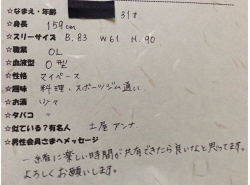 ☆なまえ・年齢 31才
☆身長 159cm
☆スリーサイズ B.83 W61 H.90
☆職業 OL
☆血液型 O型
☆性格 マイペース
☆趣味 料理・スポーツジム通い
☆お酒 少々
☆タバコ
☆似ている?有名人 土屋アンナ
☆男性会員さまへメッセージ
一緒に楽しい時間が共有できたら良いなと思ってます。
よろしくお願いします。